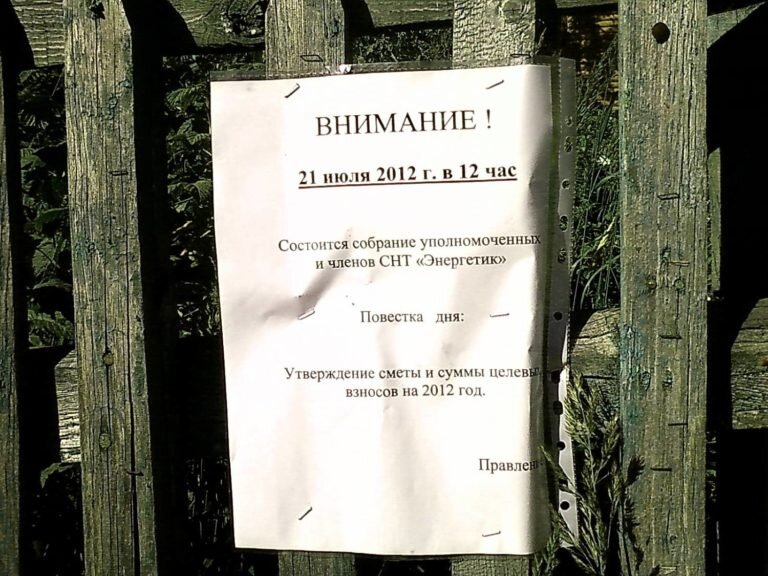 ВНИМАНИЕ !
21 июля 2012 г. в 12 час
Состоится собрание уполномоченных
и членов СНТ «Энергетик»
Повестка дня:
Утверждение сметы и суммы целевы
взносов на 2012 год.
Правлен